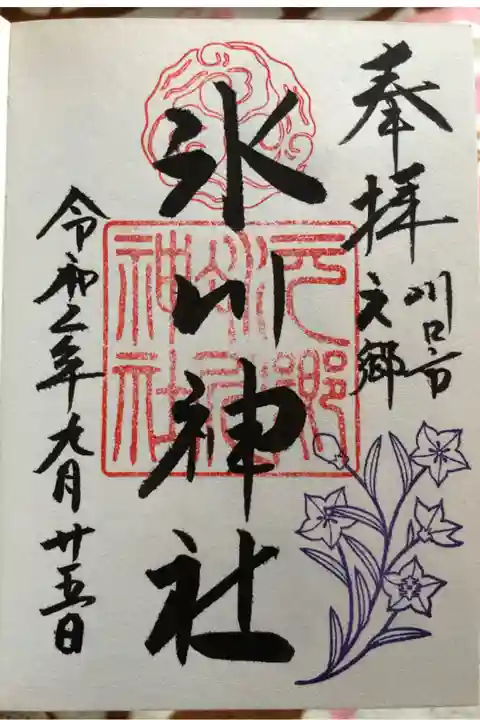 奉拝
川口市
元郷
氷川神社
元郷氷川神社
令和二年九月廿五日